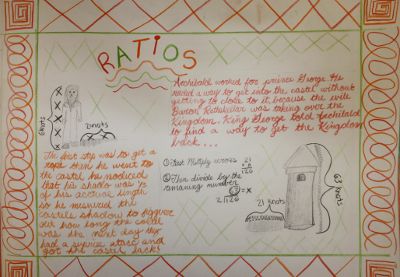 RATIOS
Architold worked for prince George He
neded a way to get into the castel without
getting to close to it because the evile
Baron Rathskellar was taking over the
Kingdom. King George told Architold
to find a way to get the Kingdom
back...
6 knots
x
x
x
x
x
2 knots
The first step was to get a
rope then he went to
the castel he nodiced
that his shado was ⅓
of his acctual length
so he mesured the
castels shadow to figgure
out how long the castel
was the next day they
had a suprise atack and
got the castel back!
① First Multiply across
21
6
126
② Then divide by the
remaining number
③ = x
2/126
21 knots
63 knots